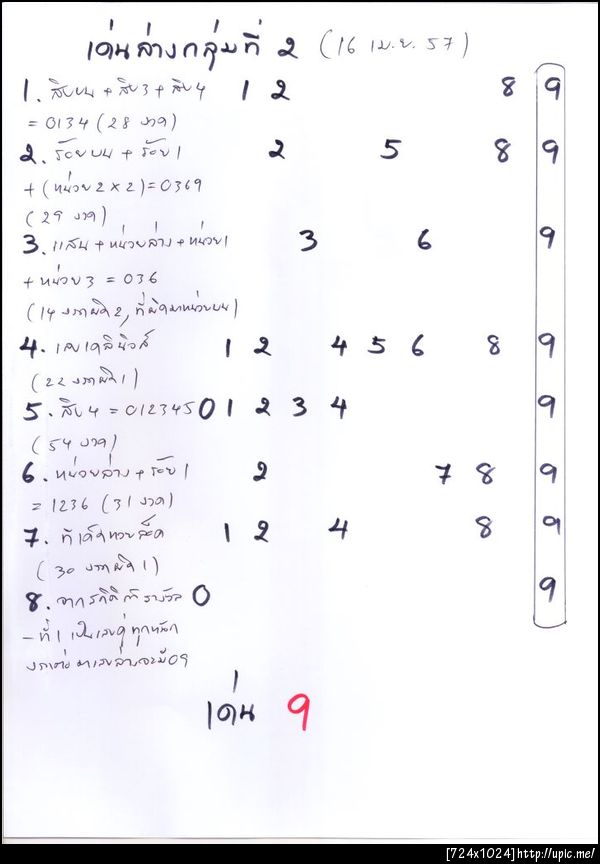 เด่นล่างกลุ่มที่ 2 (16 เม.ย. 57)
1. สิบบน + สิบ3 + สิบ4 1 2 8 9
= 0134 (28 งวด)
2. ร้อยบน + ร้อย1 2 5 8 9
+ (หน่วย2 x 2) = 0369
(29 งวด)
3. แสน + หน่วยล่าง + หน่วย1 3 6 9
+ หน่วย3 = 036
(14 งวดผิด2, ที่ผิดมาหน่วยบน)
4. เลขเดลินิวส์ 1 2 4 5 6 8 9
(22 งวดผิด1)
5. สิบ4 = 012345 0 1 2 3 4 9
(54 งวด)
6. หน่วยล่าง + ร้อย1 2 7 8 9
= 1236 (31 งวด)
7. ทีเด็ด 1 2 4 8 9
(30 งวดผิด1)
8. จากสถิติ รางวัล 0 9
- ที่1 เป็นเลขคู่ทุกหลัก
งวดต่อมาเลขล่างจะมี 09
เด่น 9
[724x1024]http://upic.me/